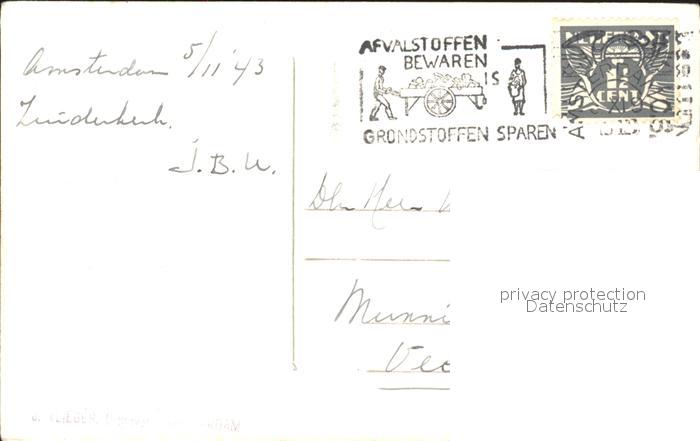 Amsterdam 5/11 '43
Zuiderkerk.
J.B.U.
AFVALSTOFFEN
BEWAREN
IS
GRONDSTOFFEN SPAREN
NEDERLAND
CENT
Dhr Heer
Munni
Vee
privacy protection
Datenschutz